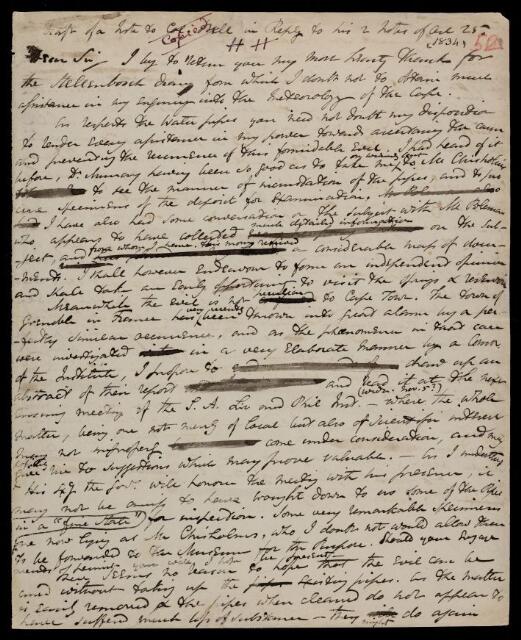 Draft of a Note to Col Bell in Reply to his 2 Notes of Oct 25
Copied
(1834)
Dear Sir I beg to return you my most hearty thanks for
the Stellenbosch diary from which I doubt not to obtain much
assistance in my enquiry into the Meteorology of the Cape.
As respects the Water pipes you need not doubt my disposition
to render every assistance in my power towards ascertaining the cause
and preventing the recurrence of this formidable evil. I had heard of it
before, Dr Murray having been so good as to take me to Mr Chisholm's
to see the manner of incrustation of the pipes, and to procure
specimens of the deposit for examination,
I have also had some conversation on the subject with Mr
who, appears to have collected much detailed information on the sub-
ject, and from whom I hence have received considerable mass of docu-
ments. I shall however endeavour to form an independent opinion
and shall take an early opportunity to visit the springs & reservoir
Meanwhile the evil is not peculiar to Cape Town. The town of
Grenoble in France has very recently been thrown into great alarm by a per-
fectly similar occurrence, and as the phenomena in that case
were investigated in a very elaborate manner by a
of the Institute, I propose to draw up an
abstract of their report and read it at the next
ensuing meeting of the S. A. Lit and Phil Inst. (Wedn. Nov. 5?) – where the whole
matter, being one not merely of local but also of scientific interest
may not improperly come under consideration, and may
give rise to suggestions which may prove valuable. – As I understand
His Exy the Govr will honour the meeting with his presence it
may not be amiss to have brought down to us some of the pipes
in a for inspection. Some very remarkable specimens
are now lying at Mr Chisholm's, who I doubt not would allow them
to be forwarded to the Museum for the purpose. Should your
be present
There seems no reason to hope that the evil can be
cured without taking up the existing pipes. As the matter
is easily removed & the pipes when cleaned do not appear to
have suffered much loss of substance – they might do again